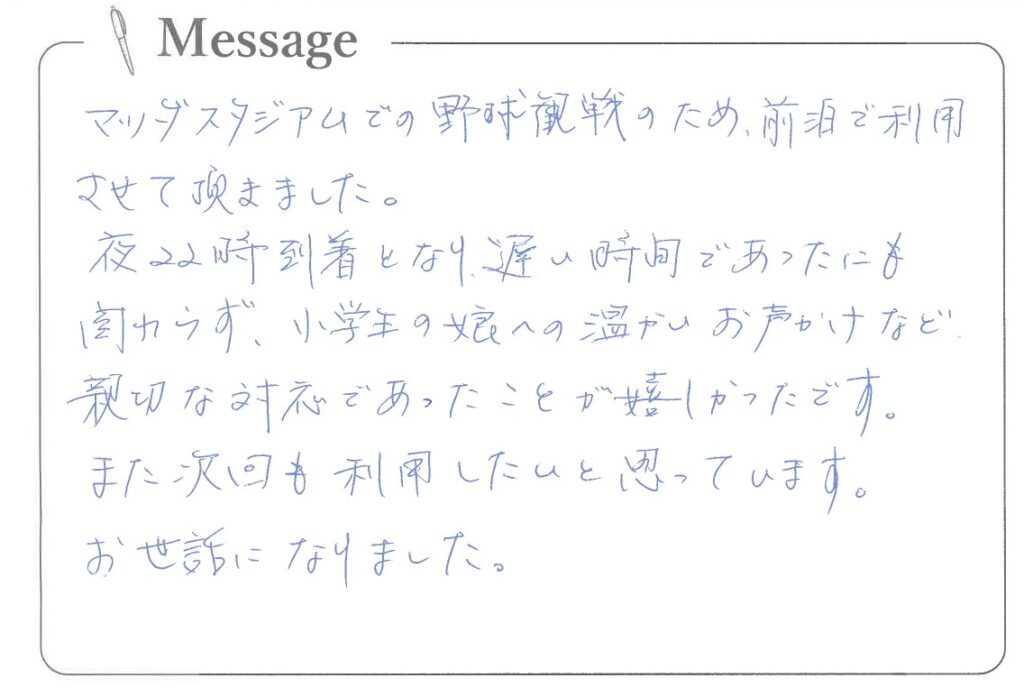 Message
マツダスタジアムでの野球観戦のため、前泊で利用
させて頂きました。
夜22時到着となり、遅い時間であったにも
関わらず、小学生の娘への温かい お声かけなど
親切な対応であったことが嬉しかったです。
また次回も利用したいと思っています。
お世話になりました。